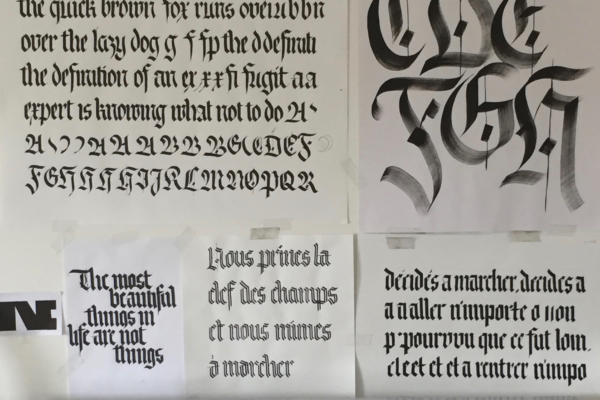 the quick brown fox runs over
over the lazy dog g f fp the d definiti
the definition of an ex x x fi fugit a a
expert is knowing what not to do A
A A A A B B B B G C E D E F
F G H H H H I J K L M N O P Q R
C D E
F G H
The most
beautiful
things in
life are not
things
Nous prîmes la
clef des champs
et nous mîmes
à marcher
décidés a marcher, decides a
a a aller n'importe o non
p pourvou que ce fut loin.
cl et et et a rentrer n'impo
N: